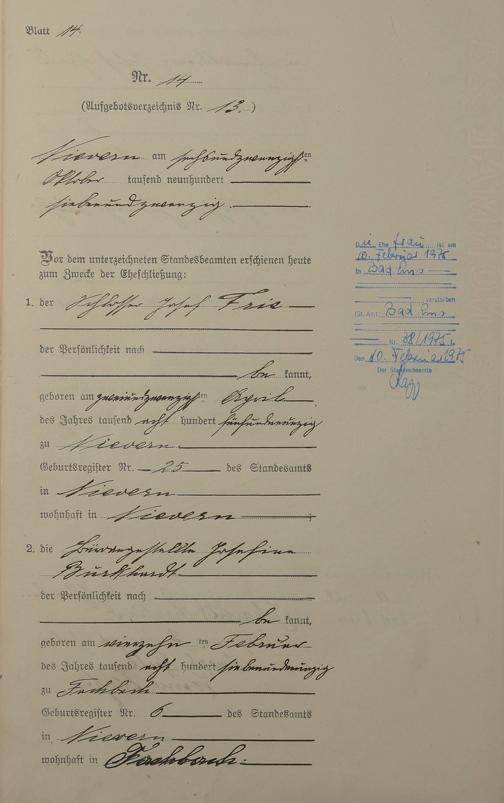 Blatt 14.
Nr. 14
(Aufgebotsverzeichnis Nr. 13.)
Nievern am sechsundzwanzigsten
Oktober tausend neunhundert
siebenundzwanzig.
Vor dem unterzeichneten Standesbeamten erschienen heute
zum Zwecke der Eheschließung:
1. der Schlosser Josef
der Persönlichkeit nach
be kannt,
geboren am zweiundzwanzigsten April
des Jahres tausend acht hundert fünfundneunzig
zu Nievern
Geburtsregister Nr. 25 des Standesamts
in Nievern
wohnhaft in Nievern
2. die Büroangestellte Josefine
Burkhardt
der Persönlichkeit nach
be kannt,
geboren am vierzehn ten Februar
des Jahres tausend acht hundert siebenundneunzig
zu Fachbach
Geburtsregister Nr. 6 des Standesamts
in Nievern
wohnhaft in Fachbach.
Die Ehefrau ist am
10. Februar 1975
in Bad Ems
verstorben
St. Amt Bad Ems
Nr. 28/1975.
Den 10. Februar 1975
Der Standesbeamte